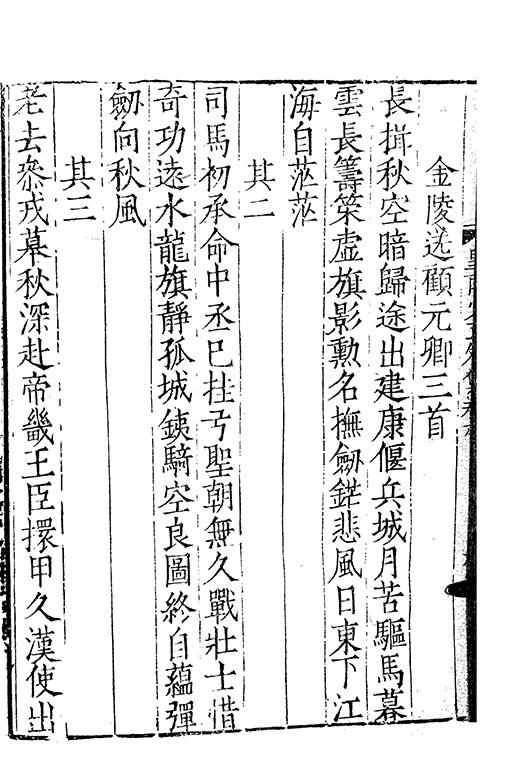 金陵送顧元卿三首
長揖秋空暗歸途出建康偃兵城月苦驅馬暮
雲長籌筞虛旗影勳名撫劒鋩悲風日東下江
海自茫茫
其二
司馬初承命中丞已挂弓聖朝無久戰壯士惜
奇功遠水龍旗靜孤城銕騎空良圖終自蘊彈
劒向秋風
其三
老去叅戎幕秋深赴帝畿王臣擐甲久漢使出